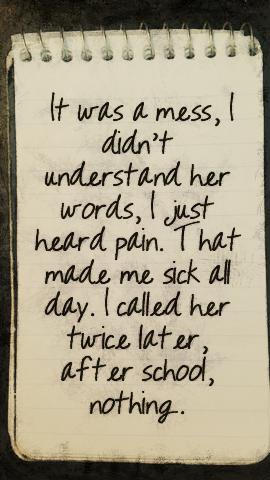 It was a mess, I
didn't
understand her
words, I just
heard pain. That
made me sick all
day. I called her
twice later,
after school,
nothing.